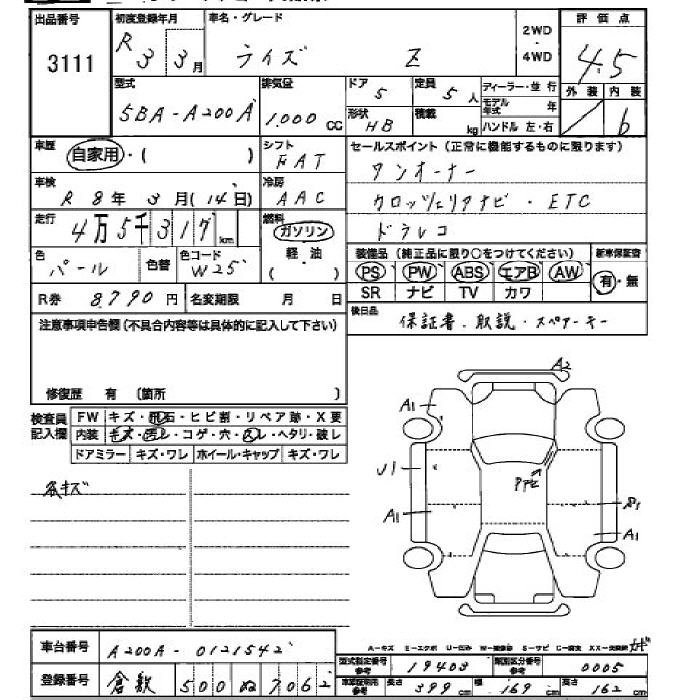 出品番号 初度登録年月 車名・グレード 2WD・4WD 評価点
3111 R3 3月 ライズ Z 4.5
型式 排気量 ドア 定員 ディーラー・並行 外装 内装
5BA-A200A 1,000cc 5 5人 モデル年式 年 b
形状 HB 積載 kg ハンドル 左・右
車歴 自家用・( ) シフト FAT セールスポイント(正常に機能するものに限ります)
ワンオーナー
車検 R8年3月(14日) 冷房 AAC カロッツェリアナビ・ETC
走行 4万5千317km 燃料 ガソリン ドラレコ
軽・油
( )
色 パール 色替 色コード W25 装備品(純正品に限り○をつけてください) 新車保証書
PS PW ABS エアB AW 有・無
SR ナビ TV カワ
R券 8790円 名変期限 月 日
後日品 保証書、取説・スペアーキー
注意事項申告欄(不具合内容等は具体的に記入して下さい)
修復歴 有 (箇所 )
検査員記入欄 FW キズ・飛石・ヒビ割・リペア跡・X要
内装 キズ・汚レ・コゲ・穴・スレ・ヘタリ・破レ
ドアミラー キズ・ワレ ホイール・キャップ キズ・ワレ
A2
A1
U1
A1
A1
各キズ
A-キズ E-エクボ U-凹み
車台番号 A200A-0121542
型式指定番号参考 19403 類別区分番号参考 0005
登録番号 倉敷 500 ぬ 7062
長さ 399cm 幅 169cm 高さ 162cm